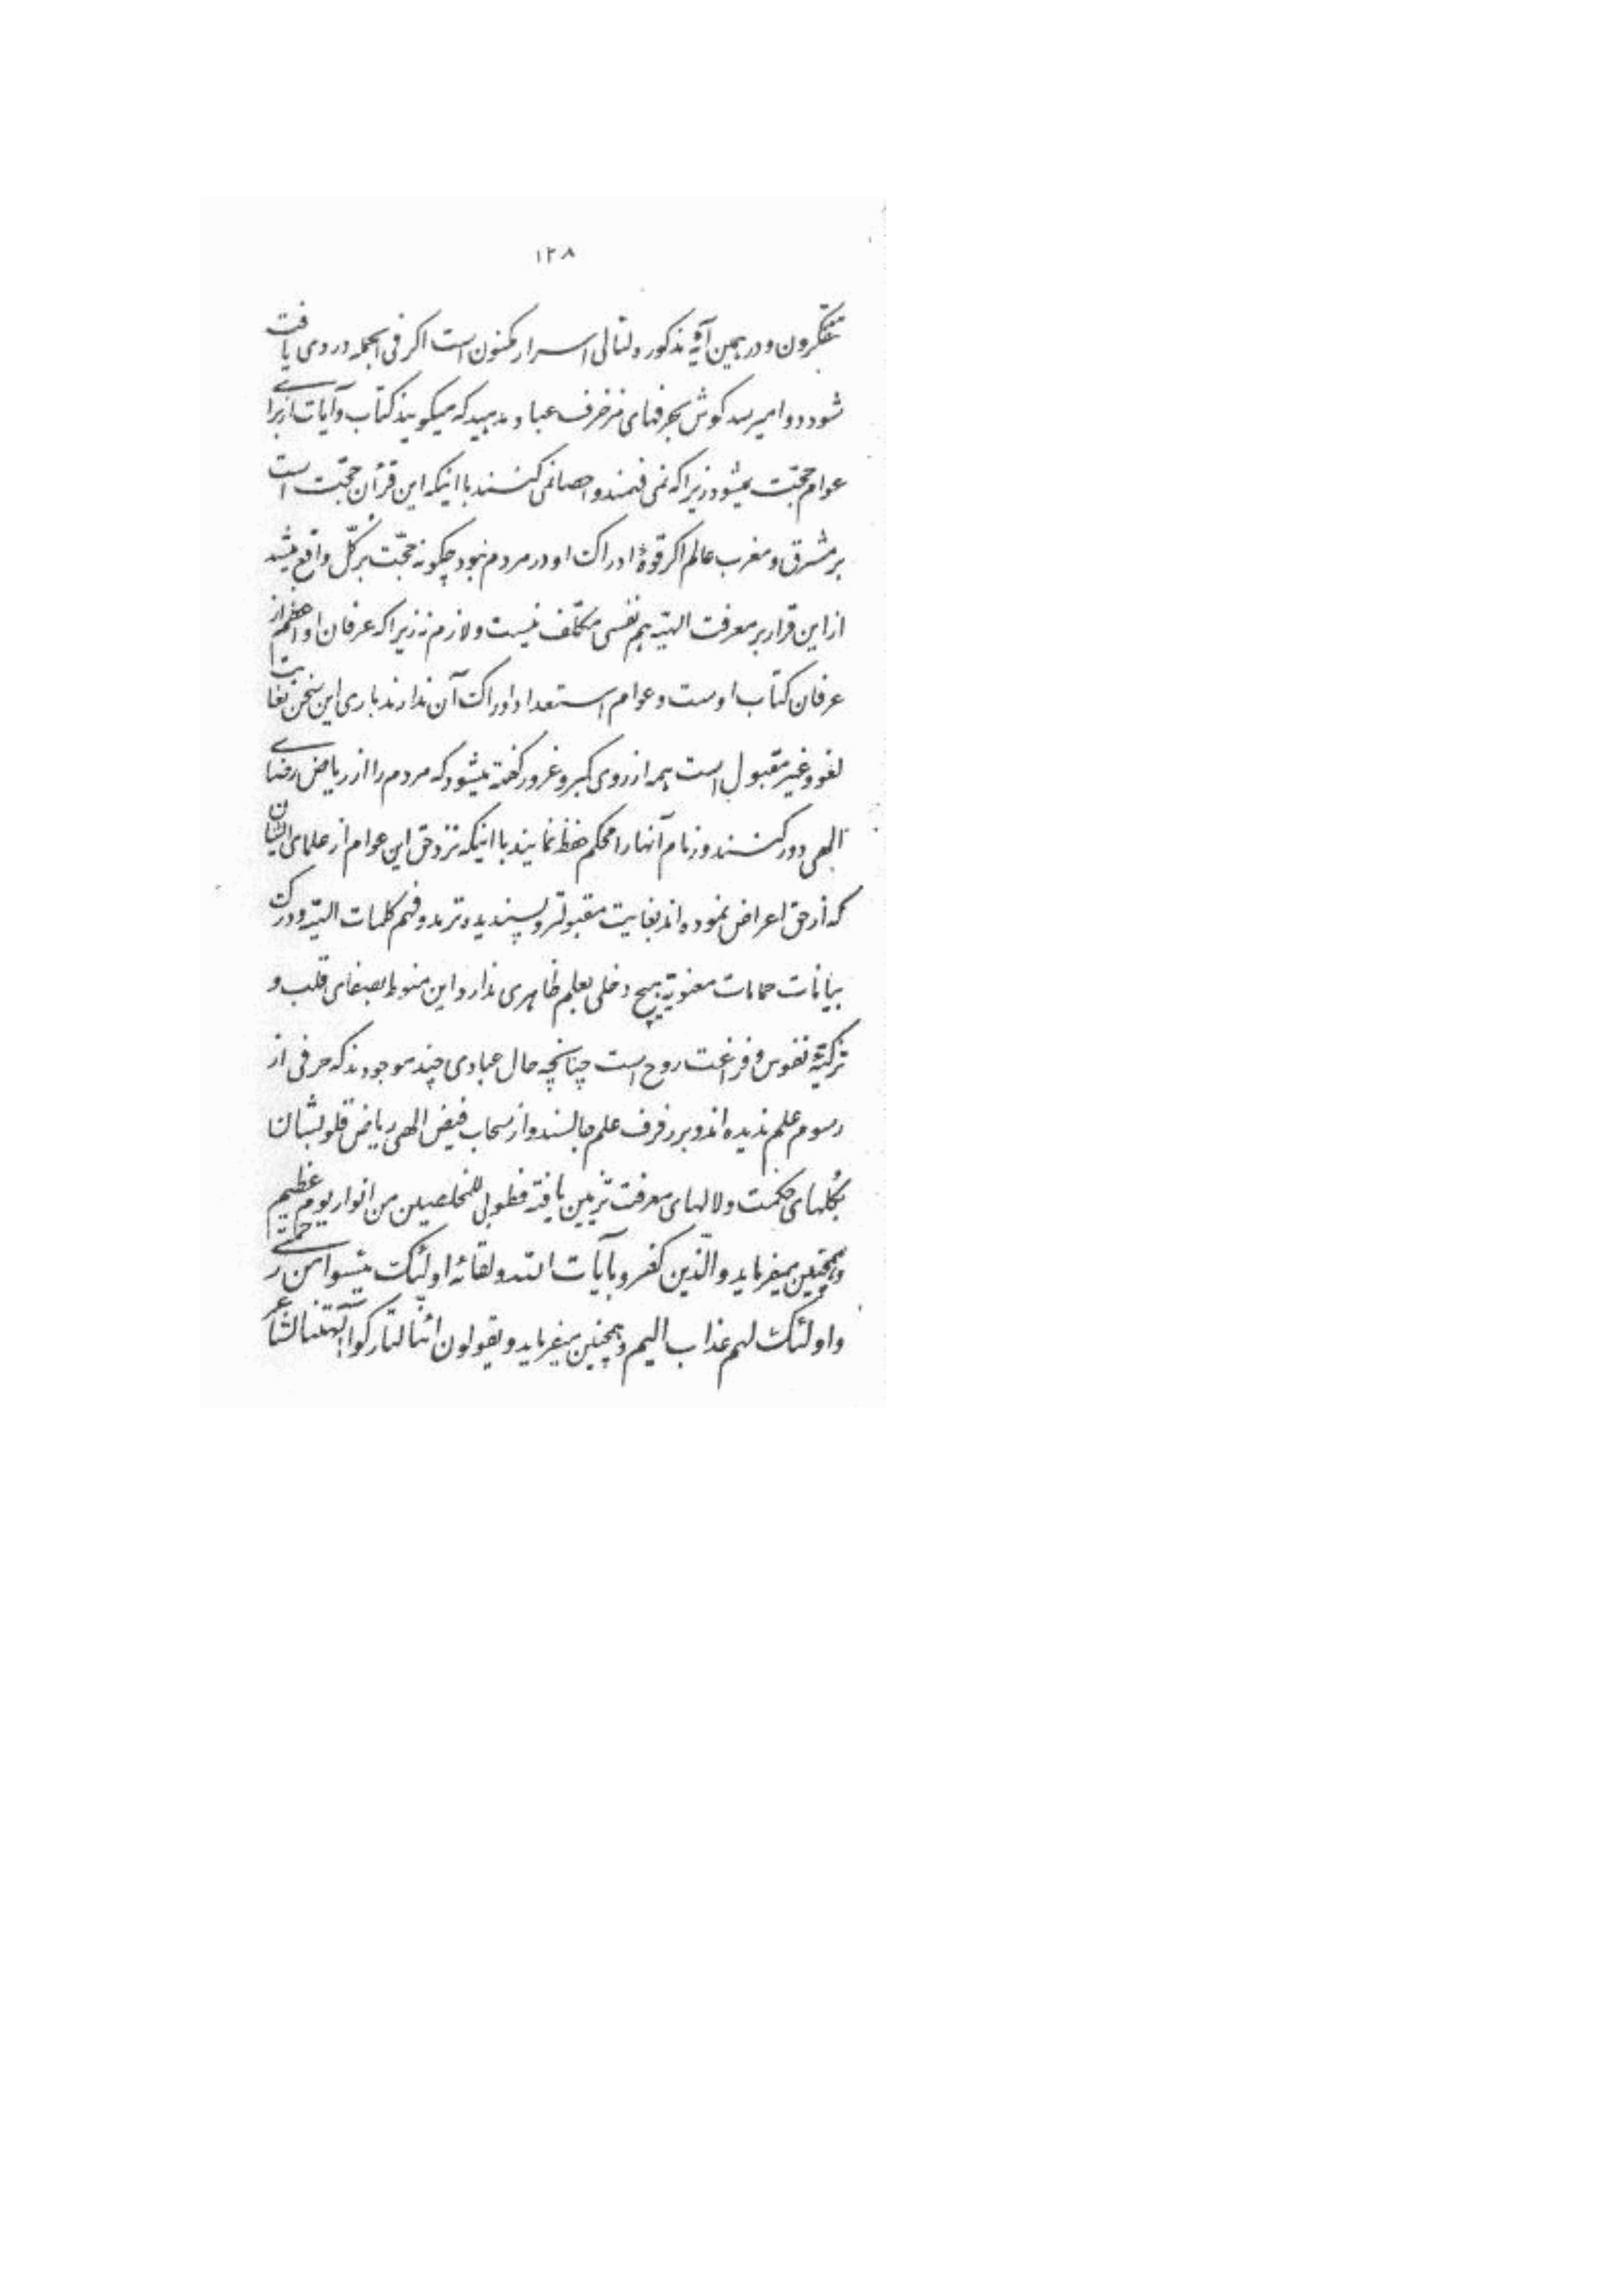 ۱۲۸
تتفکّرون و در همین آیهٔ مذکوره لئالی اسرار مکنون است اکر فی الجمله دردی یافت
شود دوا میرسد کوش بحرفهای مزخرف عباد مدهید که میکویند کتاب و آیات از برای
عوام حجّت نمیشود زیرا که نمی فهمند و احصا نمی کنند با اینکه این قرآن حجّت است
بر مشرق و مغرب عالم اکر قوّهٔ ادراک او در مردم نبود چکونه حجّت بر کلّ واقع میشد
از این قرار بر معرفت الهیّه هم نفسی مکلّف نیست و لازم نه زیرا که عرفان او اعظم از
عرفان کتاب اوست و عوام استعداد ادراک آن ندارند باری این سخن بغایت
لغو و غیر مقبول است همه از روی کبر و غرور کفته میشود که مردم را از ریاض رضای
الهی دور کنند و زمام آنها را محکم حفظ نمایند با اینکه نزد حق این عوام از علمای ایشان
که از حق اعراض نموده اند بغایت مقبولتر و پسندیده ترند و فهم کلمات الهیّه و درک
بیانات حمامات معنویّه هیچ دخلی بعلم ظاهری ندارد این منوط بصفای قلب و
تزکیهٔ نفوس و فراغت روح است چنانچه حال عبادی چند موجودند که حرفی از
رسوم علم ندیده اند و بر رفرف علم جالسند و از سحاب فیض الهی ریاض قلوبشان
بکلهای حکمت و لالهای معرفت تزیین یافته فطوبی للمخلصین من انوار یوم عظیم
و همچنین میفرماید و الّذین کفروا بآیات اللّه و لقائه اولئک یئسوا من رحمتی
و اولئک لهم عذاب الیم و همچنین میفرماید و یقولون ائنّا لتارکوا آلهتنا لشاعر